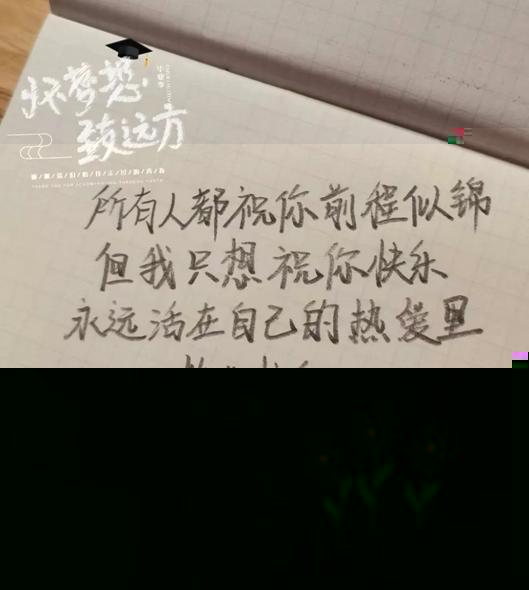 怀梦想
致远方
毕业季
所有人都祝你前程似锦
但我只想祝你快乐
永远活在自己的热爱里